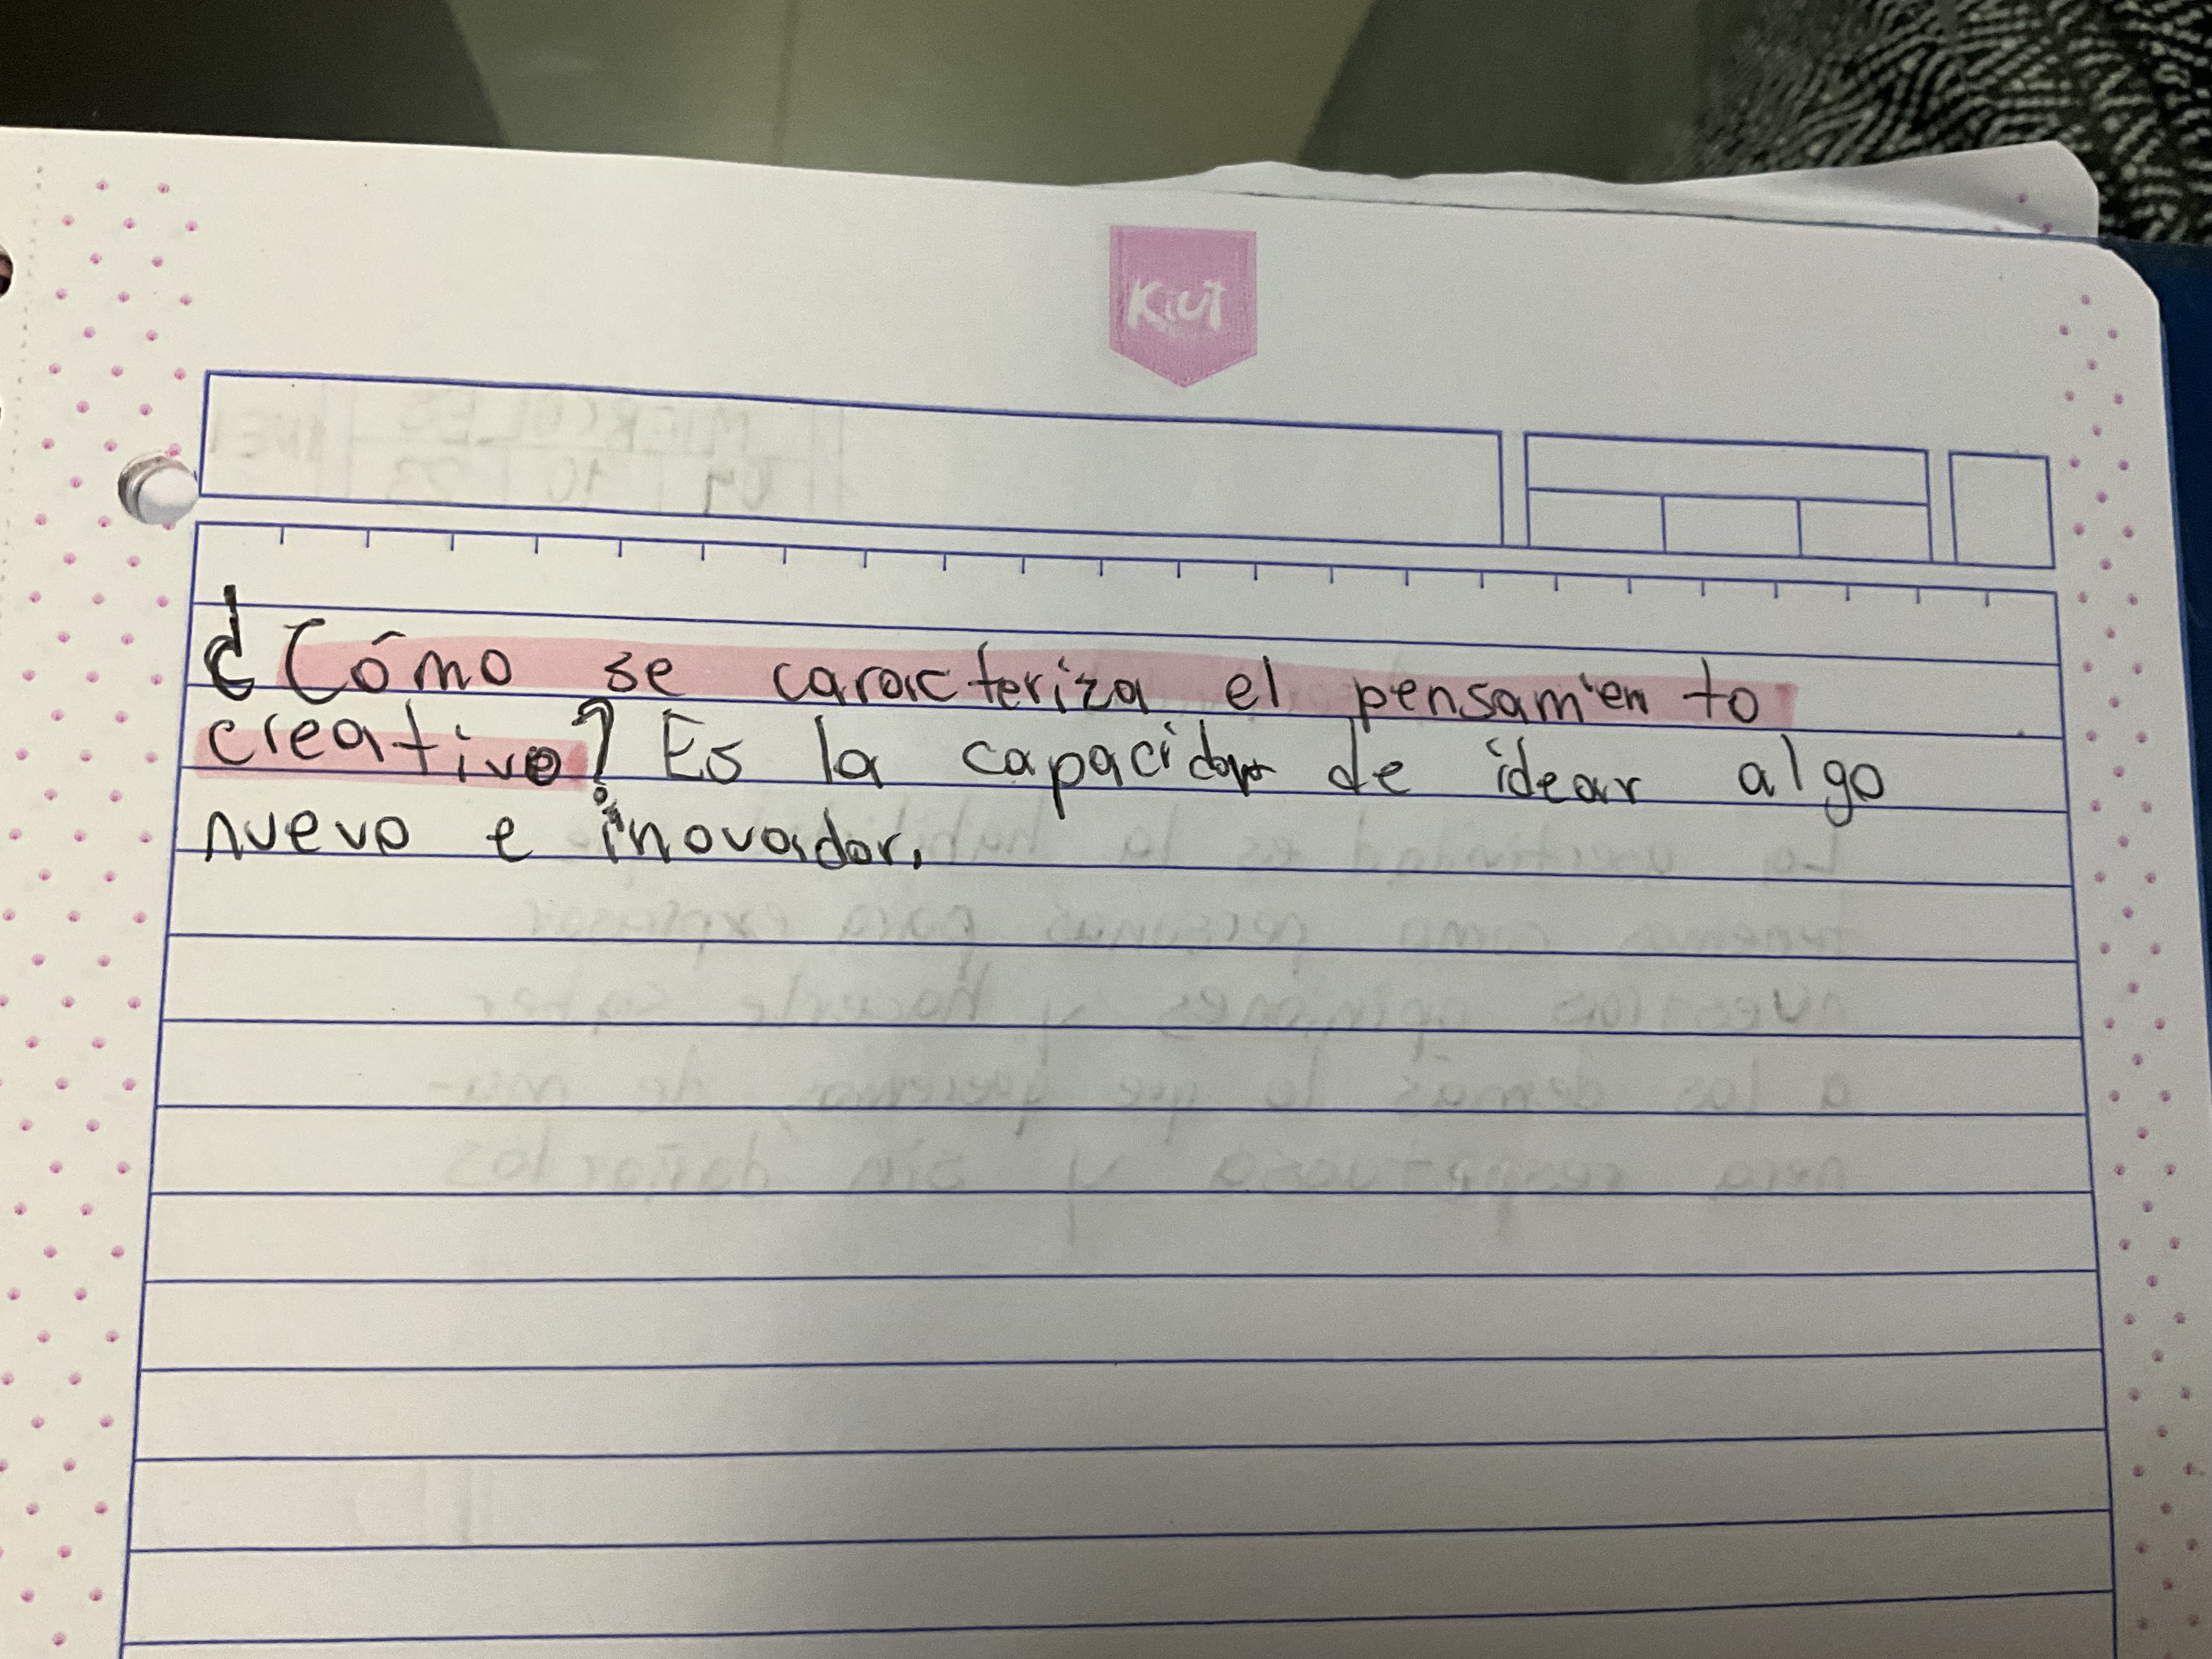 Kiut
¿Cómo se caracteriza el pensamiento
creativo? Es la capacidad de idear algo
nuevo e inovador.